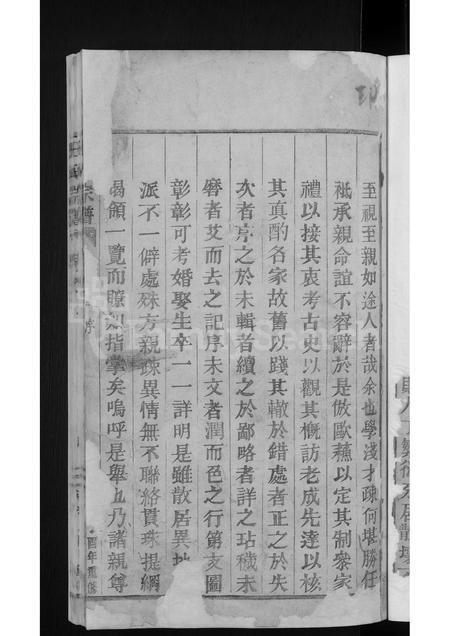 至視至親如途人者哉余也學淺才疎何堪勝任
祇承親命誼不容辭於是倣歐蘓以定其制叅家
禮以接其衷考古史以觀其概訪老成先達以核
其真酌名家故舊以踐其轍於錯處者正之於失
次者序之於未輯者續之於鄙略者詳之玷穢未
磨者艾而去之記序未文者潤而色之行第支圖
彰彰可考婚娶生卒一一詳明是雖散居異地
派不一僻處殊方親疎異情無不聯絡貫珠提綱
曷領一覽而瞭如指掌矣嗚呼是舉也乃諸親尊
宗譜
序
酉年重修
印